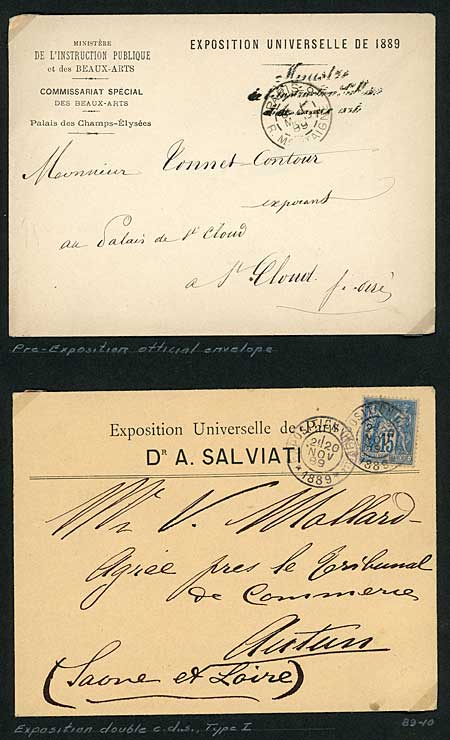 MINISTÈRE
DE L'INSTRUCTION PUBLIQUE
et des BEAUX-ARTS
COMMISSARIAT SPÉCIAL
DES BEAUX-ARTS
Palais des Champs-Élysées
EXPOSITION UNIVERSELLE DE 1889
Ministre
Monsieur Tonnet-Contour
exposant
au Palais de St Cloud
a St Cloud
Pre-Exposition official envelope
Exposition Universelle de
Dr A. SALVIATI
EXPOSITION
20
NOV
89
1889
15
Mr V. Mallard
Agréé près le Tribunal
de Commerce
Autun
(Saone et Loire)
Exposition double c.d.s., Type I
89-10